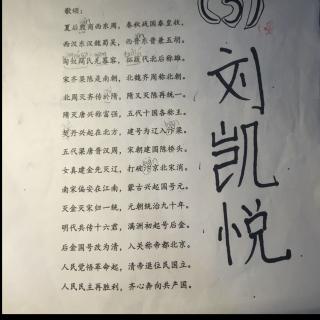 歌颂：
夏后殷商西东周，春秋战国秦皇收，
西汉东汉魏蜀吴，西晋东晋兼五胡。
匈奴羯氐羌慕容，拓跋代北后称雄，
宋齐梁陈是南朝，北魏齐周称北朝，
北周灭齐传於隋，隋又灭陈再统一，
隋灭唐兴称富强，五代十国各称王，
契丹兴起在北方，建号为辽入汴梁。
五代梁唐晋汉周，宋朝建国陈桥头，
女真建金先灭辽，打破汴京北宋消。
南宋偏安在江南，蒙古兴起国号元，
灭金灭宋归一统，元朝统治九十年，
明代共传十六君，满洲初起号后金，
后金国号改为清，入关称帝都北京。
人民觉悟革命起，清帝退位民国立，
人民民主再胜利，齐心奔向共产国。
(5)
刘凯悦